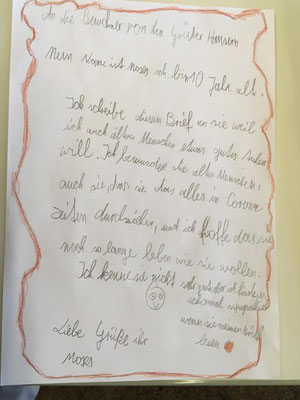 An die Bewohner von den Häusern
Mein Name ist Moses ich bin 10 Jahre alt.
Ich schreibe diesen Brief an sie weil
ich auch ältern Menschen etwas gutes
will. Ich bewundere alle alten Menschen,
auch sie, das sie das alles in Corona
zeiten durchmachen, und ich hoffe das sie
noch so lange leben wie sie wollen.
Ich kenne sie nicht sehr gut aber ich
sie
wenn sie meinen Brief
lesen
Liebe Grüße ihr
Moses